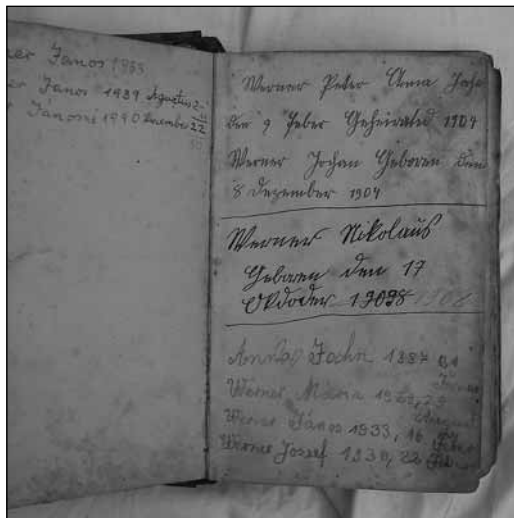 ner Janos 1933
er Janos 1989 Agusztus 2
Jánosné 1990 November 22
Werner Peter Anna Johs
den 9 Feber Geheirated 1904
Werner Johan Geboren den
8 Dezember 1904
Werner Nikolaus
Geboren den 17
Okdoder 19098 1908
Anna John 1887
Werner Maria 29
Werner János 1933, 16 Feber
Werner Jossef 1936, 22